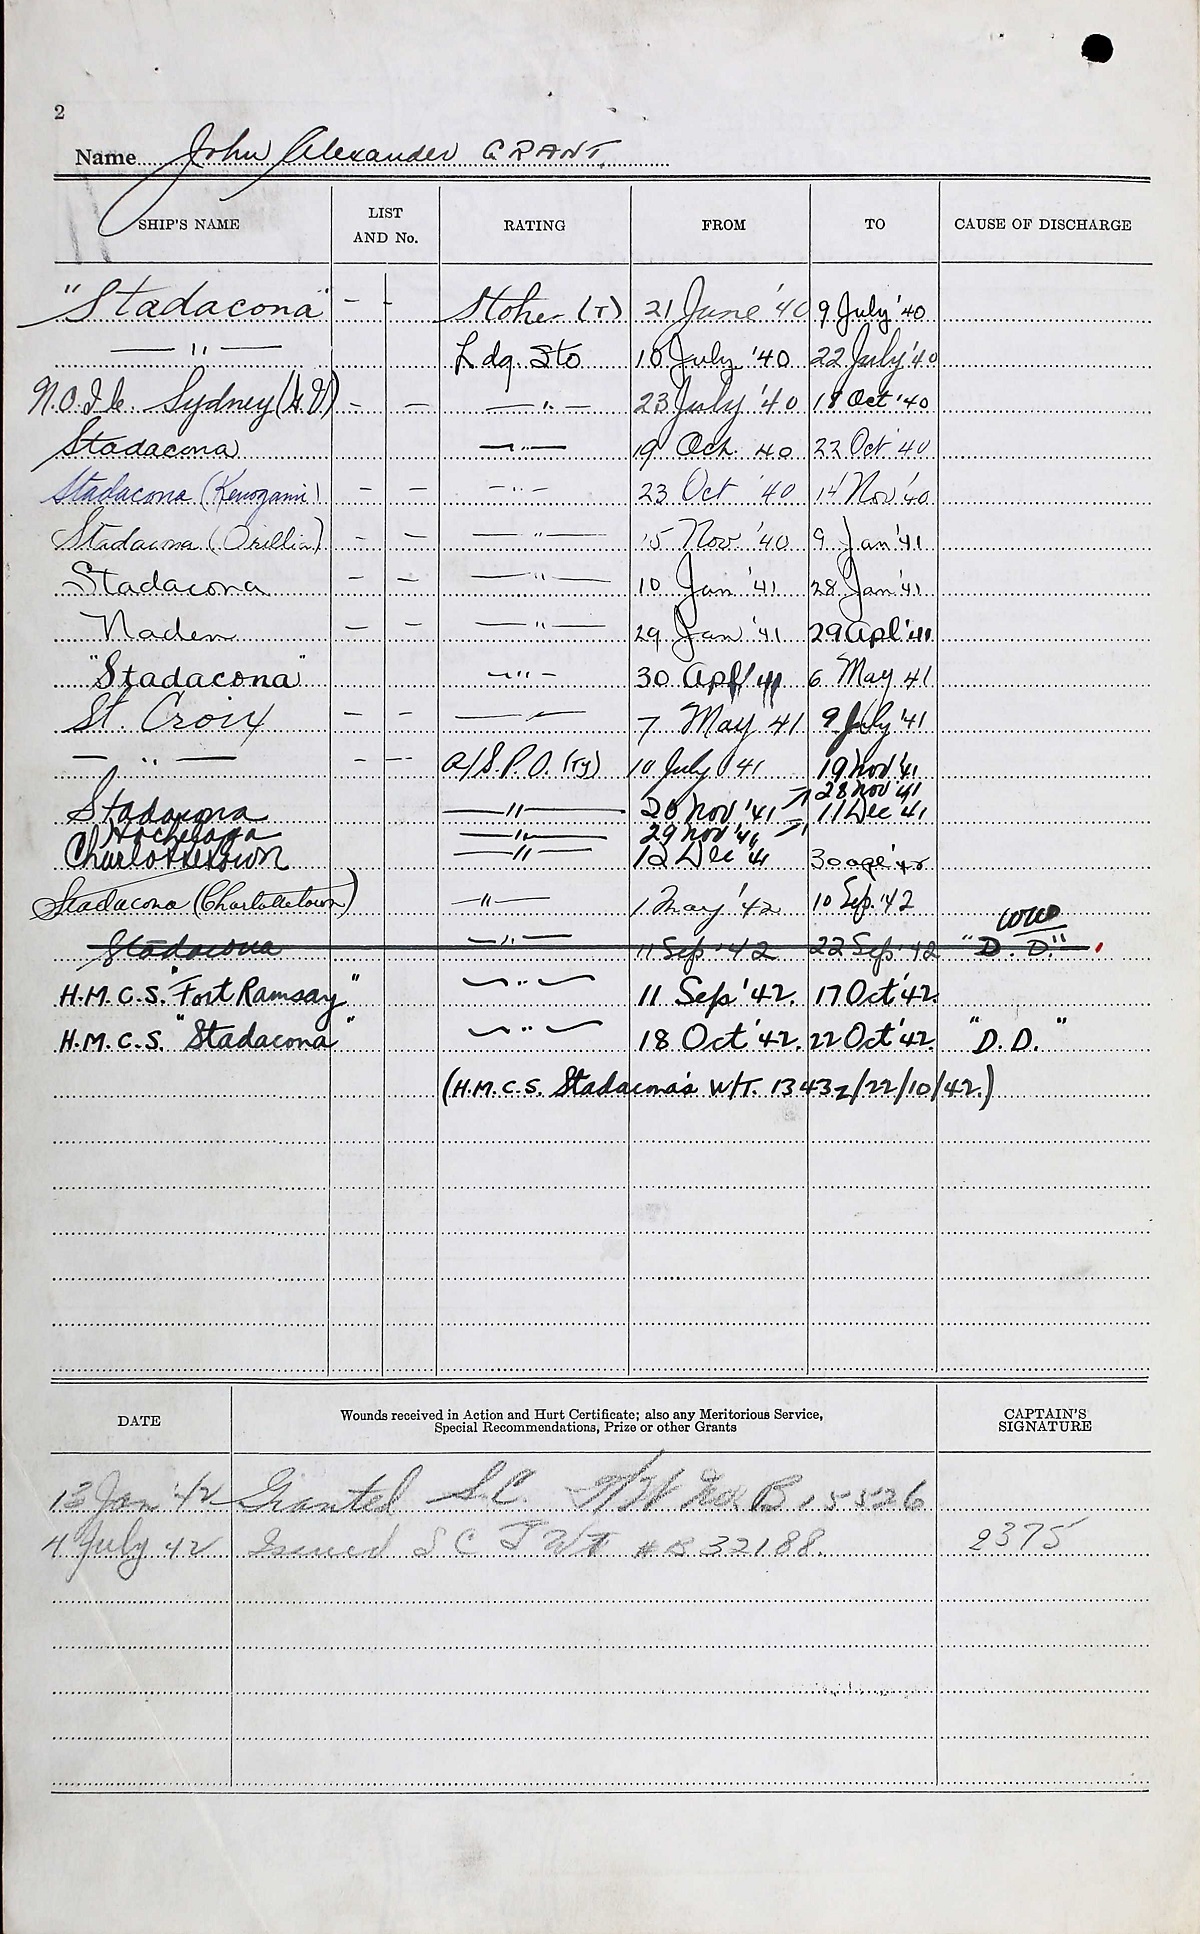 2
Name John Alexander GRANT.
SHIP'S NAME LIST AND No. RATING FROM TO CAUSE OF DISCHARGE
"Stadacona" - - Stoker (T) 21 June '40 9 July '40
— " — Ldg. Sto 10 July '40 22 July '40
N.O.I.C. Sydney — — — " — 23 July '40 18 Oct '40
Stadacona — " — 19 Oct. 40 22 Oct 40
Stadacona (Kenogami) — — — " — 23 Oct '40 14 Nov '40
Stadacona (Orillia) — — — " — 15 Nov. '40 9 Jan '41
Stadacona — — — " — 10 Jan '41 28 Jan '41
Naden — — — " — 29 Jan '41 29 Apl '41
"Stadacona" — " — 30 Apl '41 6 May 41
St. Croix — — — " — 7 May 41 9 July '41
— " — — — A/S.P.O. (Ty) 10 July '41 19 Nov '41
Stadacona — " — 20 Nov '41 28 Nov '41
Hochelaga — " — 29 Nov '41 11 Dec '41
Charlottetown — " — 12 Dec '41 30 Apl '42
Stadacona (Charlottetown) — " — 1 May '42 10 Sep. '42
Stadacona — " — 11 Sep '42 22 Sep '42 "D.D."
H.M.C.S. "Fort Ramsay" — " — 11 Sep '42. 17 Oct '42.
H.M.C.S. "Stadacona" — " — 18 Oct '42. 22 Oct '42. "D.D."
(H.M.C.S. Stadacona's W/T. 1343z/22/10/42.)
DATE Wounds received in Action and Hurt Certificate; also any Meritorious Service, CAPTAIN'S
Special Recommendations, Prize or other Grants SIGNATURE
13 Jan '42 Granted S.C. B 15526
4 July 42 Issued S C # B 32188. 2375